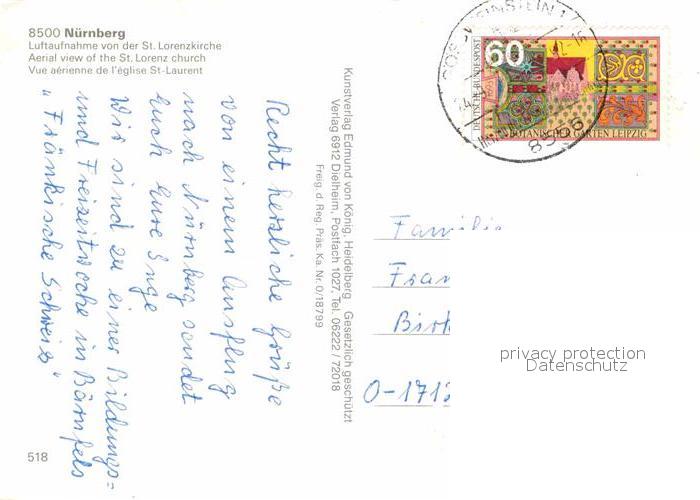 8500 Nürnberg
Luftaufnahme von der St. Lorenzkirche
Aerial view of the St. Lorenz church
Vue aérienne de l'église St-Laurent
60
DEUTSCHE BUNDESPOST
BOTANISCHER GARTEN LEIPZIG
Recht herzliche Grüße
von einem Ausflug
nach Nürnberg sendet
Euch Eure Inge
Wir sind zu einer Bildungs=
und Freizeitwoche in Bärnfels
"Fränkische Schweiz"
Kunstverlag Edmund von König, Heidelberg Gesetzlich geschützt
Verlag 6912 Dielheim, Postfach 1027, Tel. 06222 / 72018
Freig. d. Reg. Präs. Ka. Nr. 0/18799
Familie
Fran
Birk
O-1713
privacy protection
Datenschutz
518